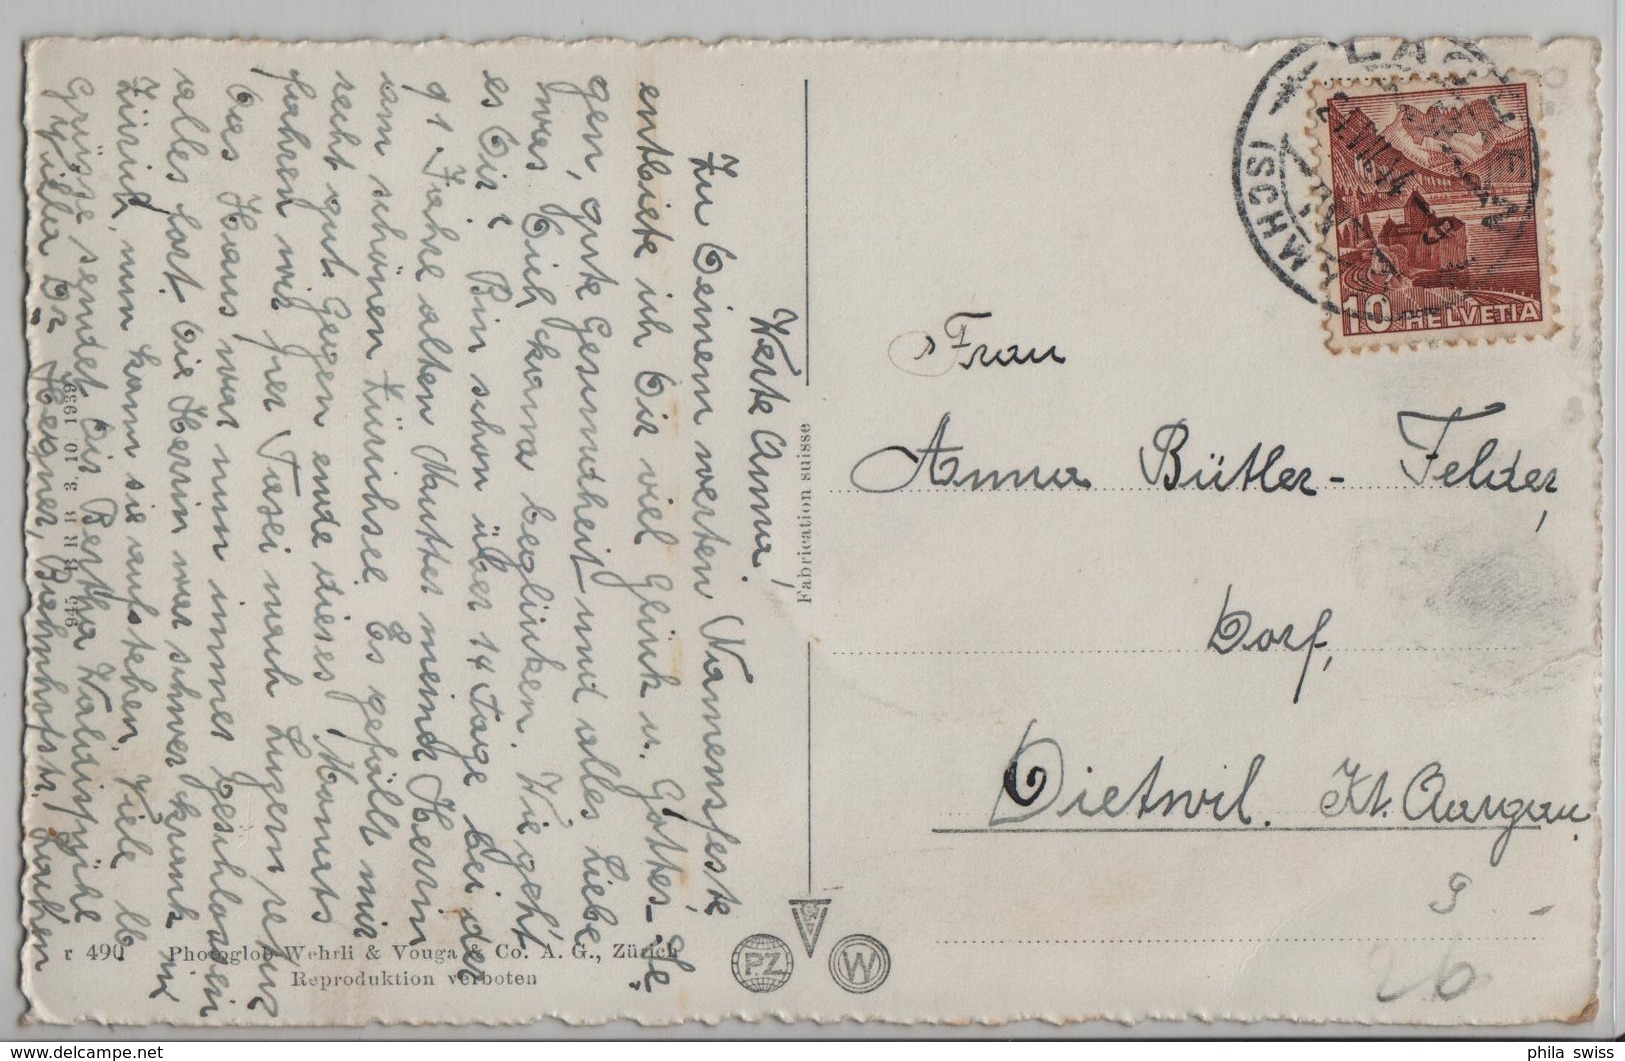 Werte Anna!
Zu Deinem werten Namensfeste
entbiete ich Dir viel Glück u. Gottes-Se-
gen, gute Gesundheit und alles Liebe
was Dich kann beglücken. Wie geht
es Dir? Bin schon über 14 Tage bei der
91 Jahre alten Mutter meiner Herrin
am schönen Zürichsee. Es gefällt mir
recht gut. Gegen ende dieses Monats
fahren wir per Taxi nach Luzern retour
Das Haus war nun immer geschlossen
alles fort. Die Herrin war schwer krank in
Zürich, nun kann sie aufstehen. Viele lb
Grüsse sendet Dir Bertha
Villa Dr. Hegner, Bahnhofstr. Lachen
946 R H R 3. 10 1939
r 490 Photoglob-Wehrli & Vouga & Co. A. G., Zürich
Reproduktion verboten
Fabrication suisse
PZ
W
LACHEN
(SCHWYZ)
10 HELVETIA
Frau
Anna Bütler-Felder,
Dorf,
Dietwil. Kt. Aargau.
26
phila_swiss